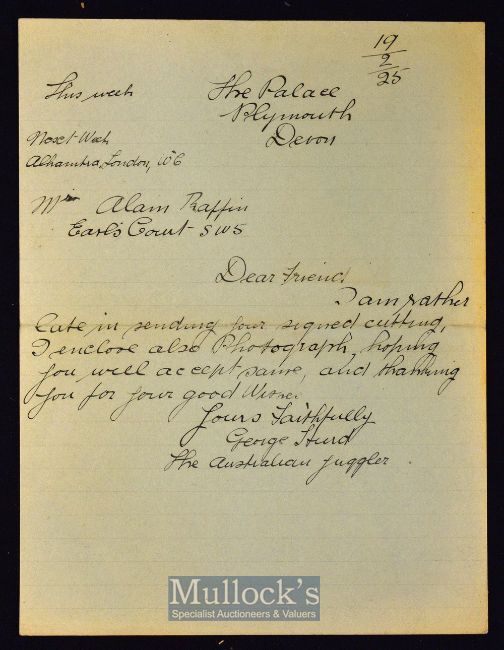 19
2
25
This week
The Palace
Plymouth
Devon
Next Week
Alhambra, London, WC
Mr Alam Raffin
Earl's Court SW5
Dear Friend
I am rather
late in sending your signed cutting,
I enclose also Photograph, hoping
you well accept same, and thanking
you for your good Wishes
Yours Faithfully
George Hurd
The Australian Juggler.
Mullock's
Specialist Auctioneers & Valuers